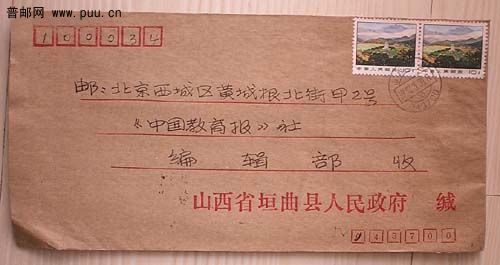 普邮网 www.puu.cn
100034
邮:北京西城区黄城根北街甲2号
《中国教育报》社
编辑部 收
山西省垣曲县人民政府 缄
043700